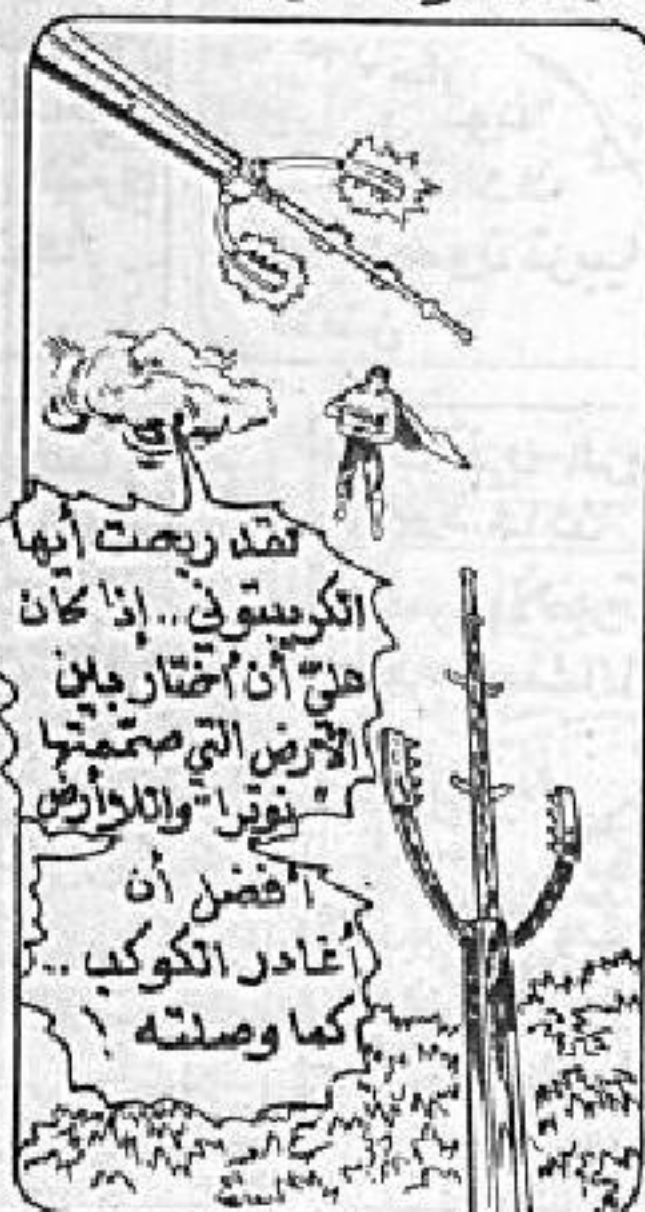 لقد ربحت أيها
الكريبتوني.. إذا كان
عليّ أن أختار بين
الأرض التي صممتها
"نوترا" واللاأرض
أفضل أن
أغادر الكوكب ..
كما وصلته !